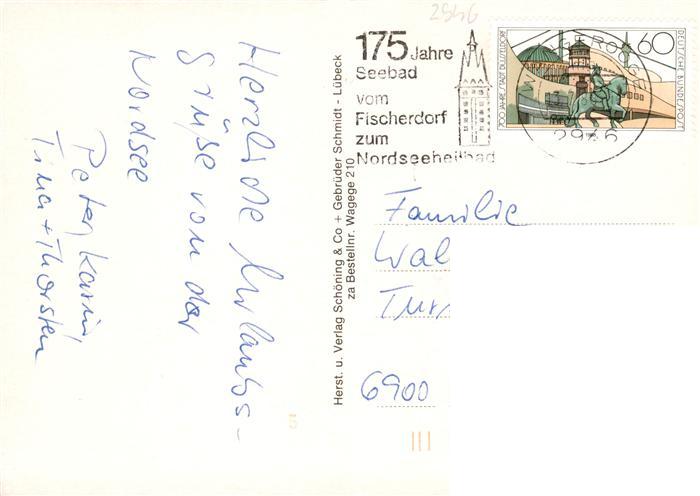 Herzliche Urlaubs-
grüße von der
Nordsee
Peter, Karin,
Tina + Thorsten
Herst. u. Verlag Schöning & Co + Gebrüder Schmidt - Lübeck
za Bestellnr. Wagege 210
2946
175 Jahre
Seebad
vom
Fischerdorf
zum
Nordseeheilbad
60
DEUTSCHE BUNDESPOST
700 JAHRE STADT DÜSSELDORF
2946
Familie
Wal
Tur
6900
5